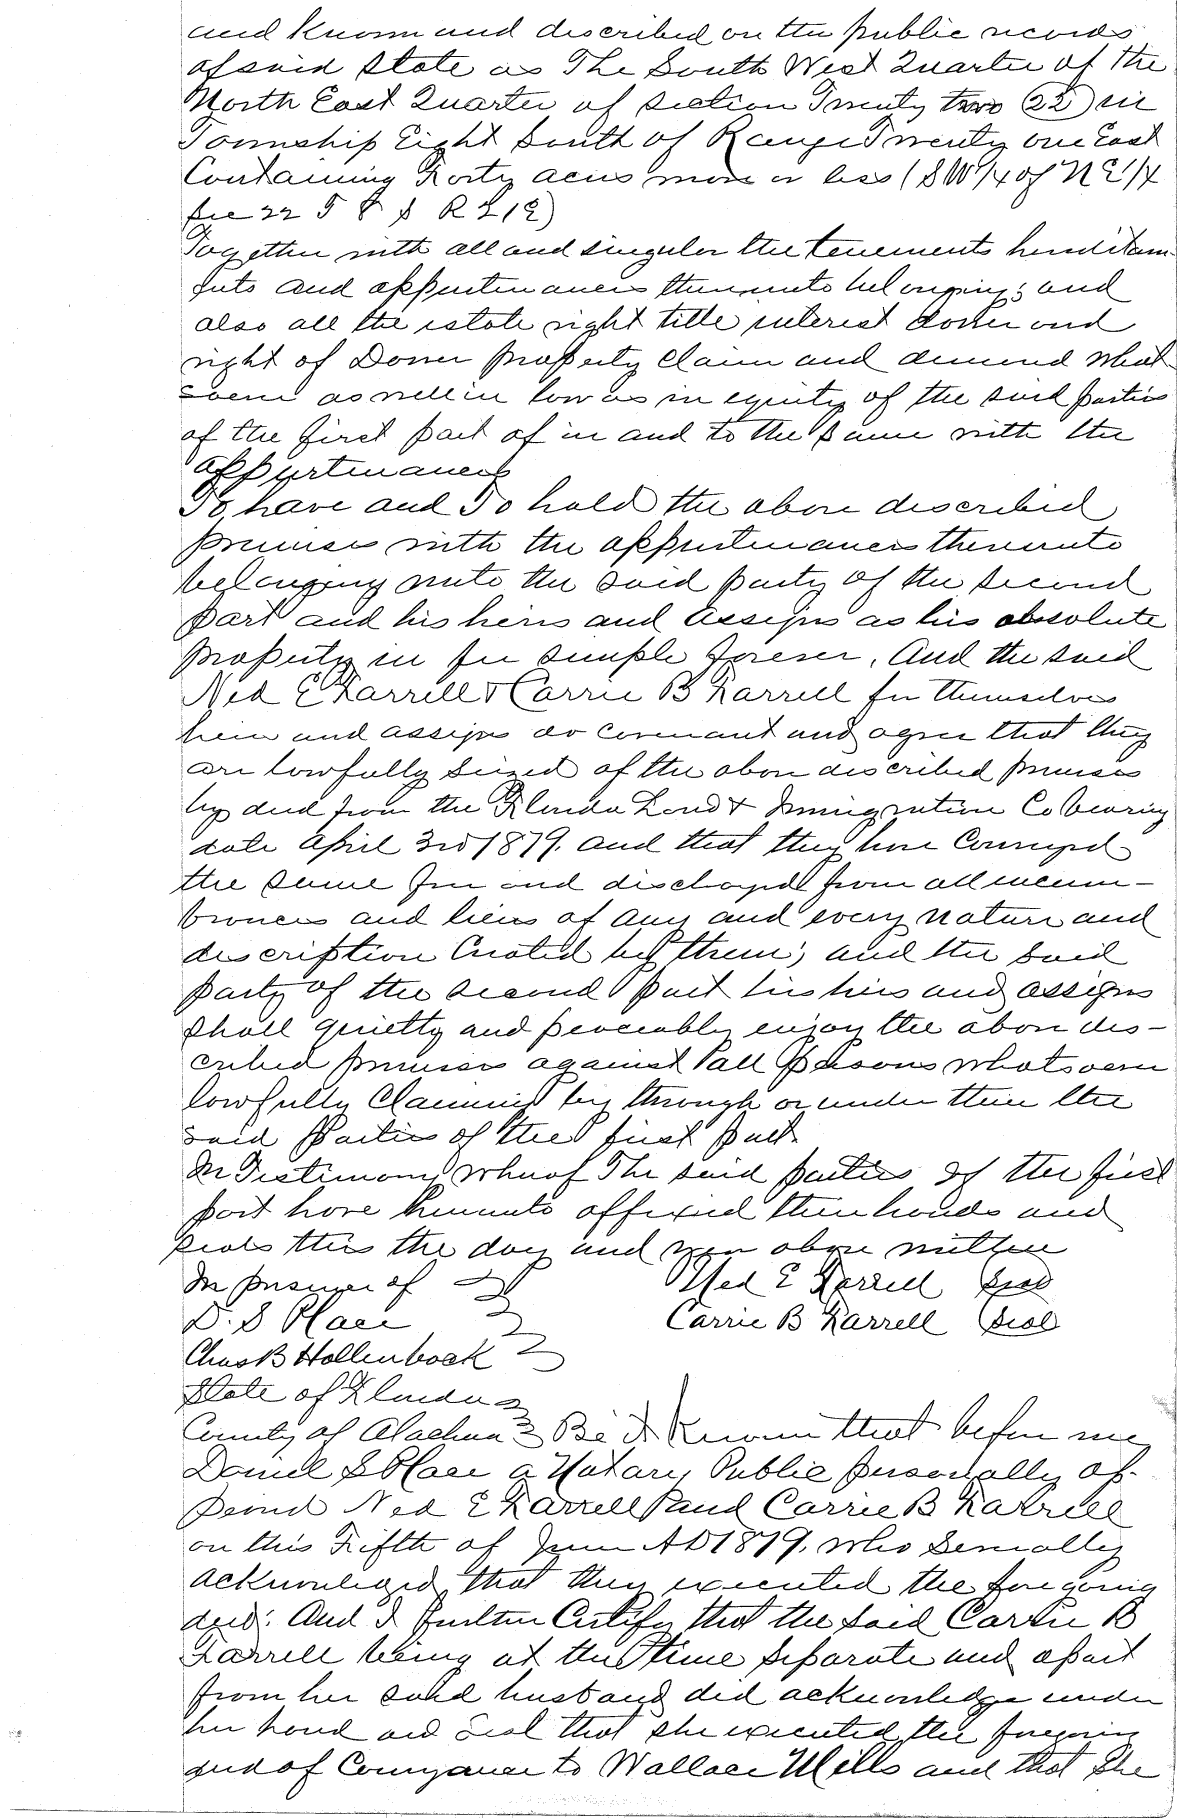 and known and described on the public records
of said State as The South West Quarter of the
North East Quarter of Section Twenty two (22) in
Township Eight South of Range Twenty one East
Containing Forty acres more or less (SW 1/4 of NE 1/4
Sec 22 T 8 S R 21 E)
Together with all and singular the tenements hereditam-
ents and appurtenances thereunto belonging; and
also all the estate right title interest dower and
right of Dower property claim and demand what-
soever as well in law as in equity of the said parties
of the first part of in and to the same with the
appurtenances
To have and To hold the above described
premises with the appurtenances thereunto
belonging unto the said party of the second
part and his heirs and assigns as his absolute
property in fee simple forever. And the said
Ned E Farrell & Carrie B Farrell for themselves
heirs and assigns do covenant and agree that they
are lawfully seized of the above described premises
by deed from the Florida Land & Immigration Co bearing
date April 3rd 1879. and that they have Conveyed
the same free and discharged from all incum-
brances and liens of any and every nature and
description Created by them; and the said
party of the second part his heirs and assigns
shall quietly and peaceably enjoy the above des-
cribed premises against all persons whatsoever
lawfully Claiming by through or under them the
said Parties of the first part.
In Testimony whereof The said parties of the first
part have hereunto affixed their hands and
seals this the day and year above written
In presence of Ned E Farrell (Seal)
D. S Place Carrie B Farrell (Seal)
Chas B Hollenback
State of Florida
County of Alachua Be it Known that before me
Daniel S Place a Notary Public personally ap-
peared Ned E Farrell and Carrie B Farrell
on this Fifth of June AD 1879. who Serverally
acknowleged that they executed the foregoing
deed: And I further Certify that the said Carrie B
Farrell being at the time separate and apart
from her said husband did acknowledge under
her hand and seal that she executed the foregoing
deed of Conveyance to Wallace Mills and that she